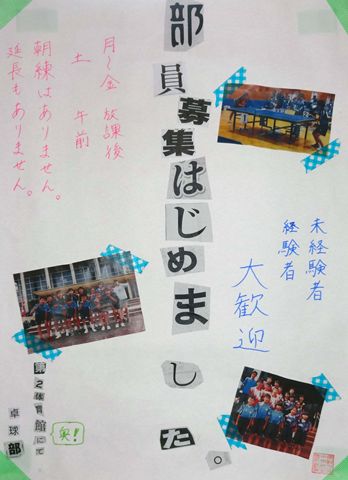 部員募集はじめました。
未経験者
経験者
大歓迎
月～金 放課後
土 午前
朝練はありません。
延長もありません。
第2体育館にて
奥!
卓球部